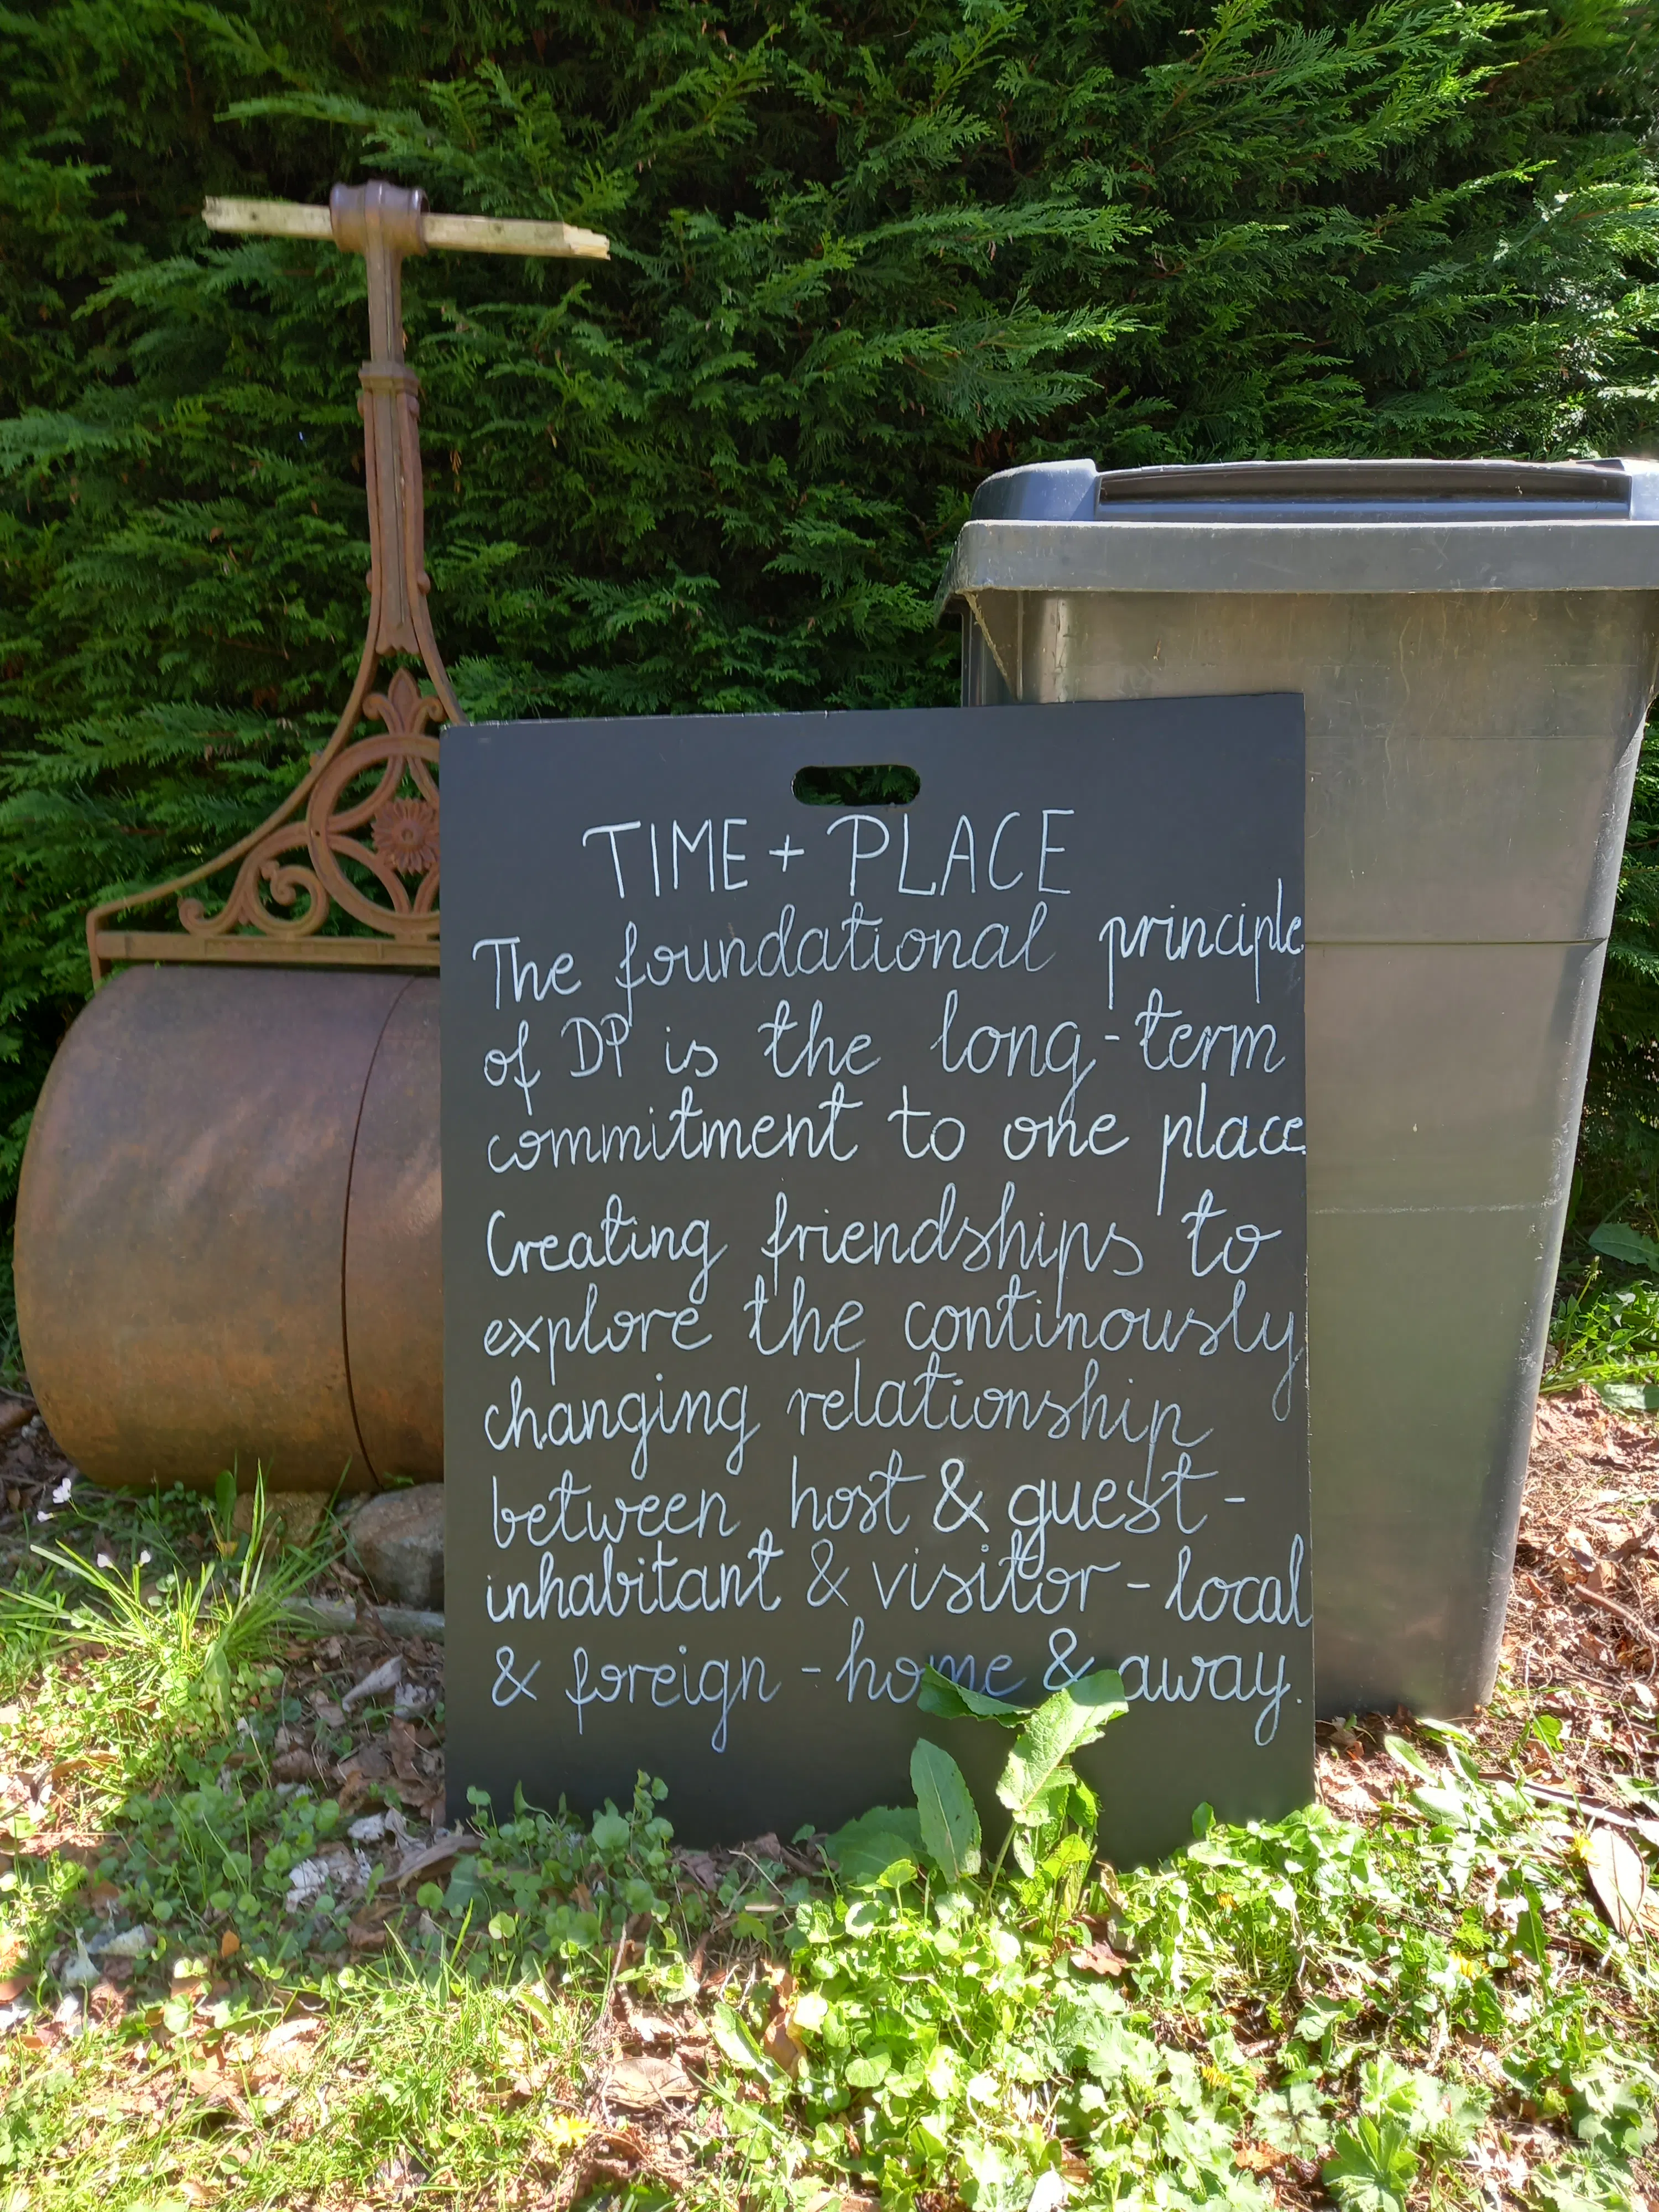 TIME + PLACE
The foundational principle
of DP is the long-term
commitment to one place.
Creating friendships to
explore the continously
changing relationship
between host & guest -
inhabitant & visitor - local
& foreign - home & away.